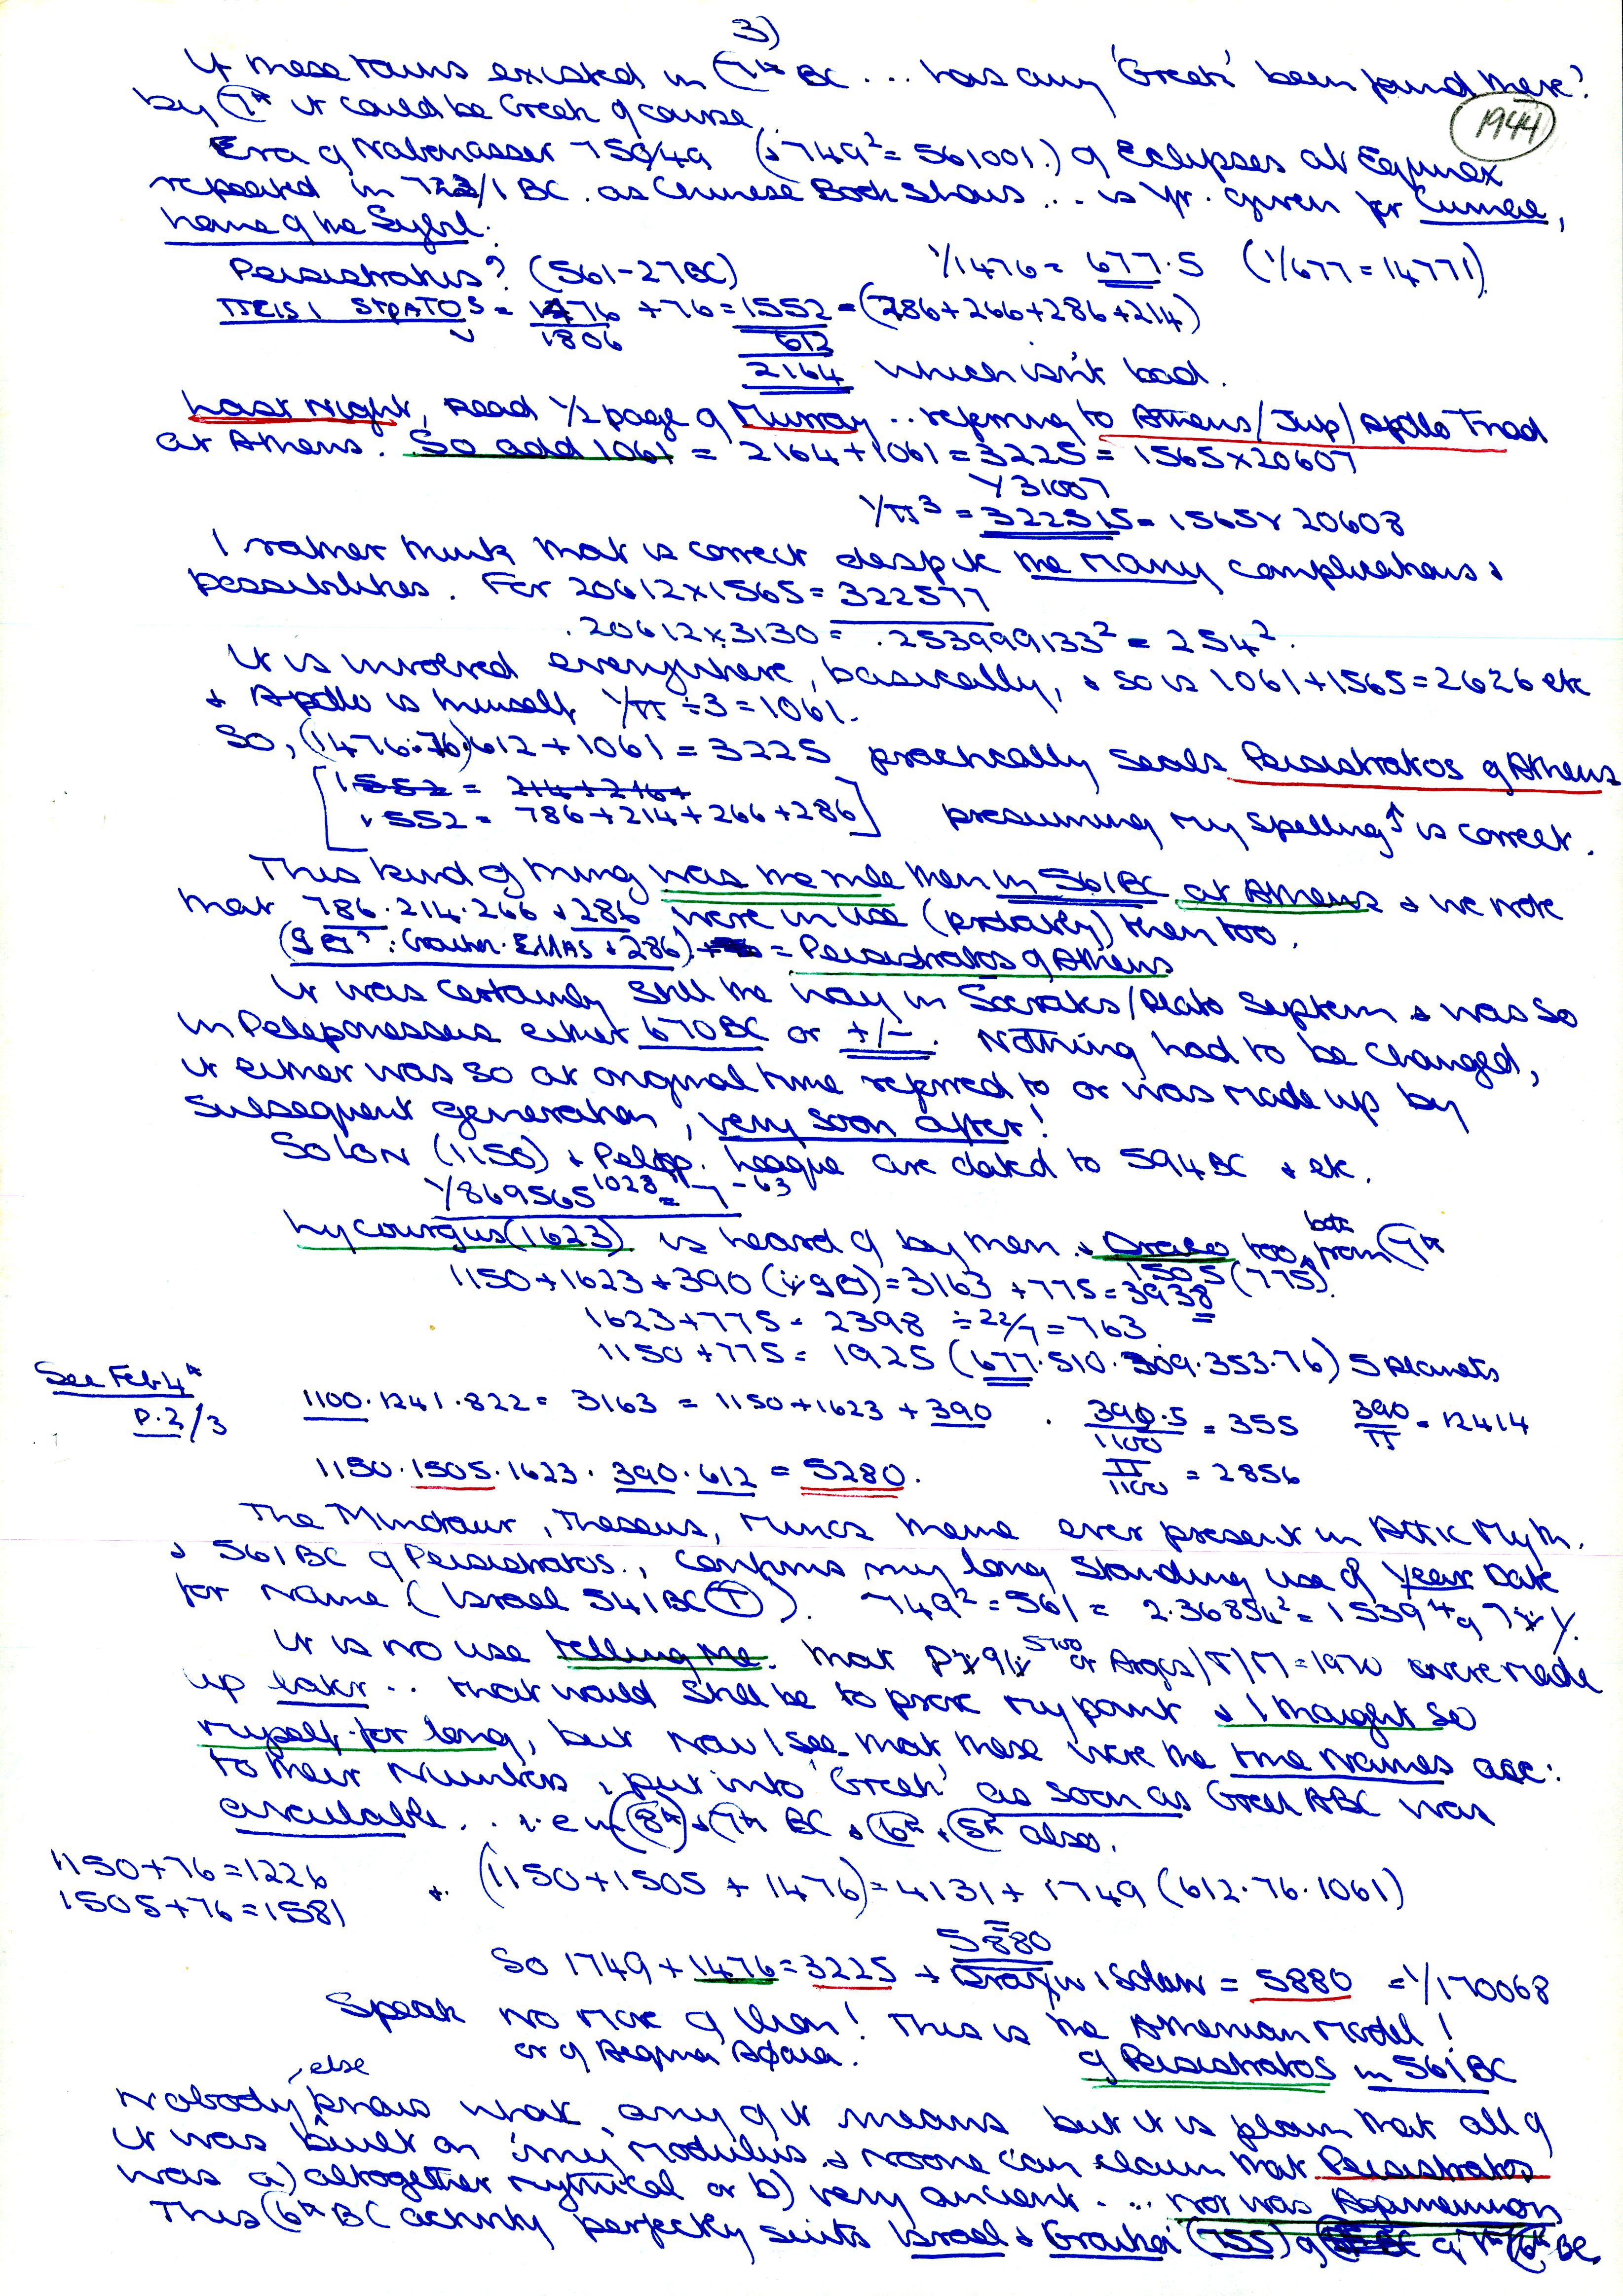 3)
If these towns existed in 7th BC ... has any 'Greek' been found there?
by 7th it could be Greek of course.
1944
Era of Nabonasser 750/49 (& 749² = 561001.) of Eclipses at Equinox
repeated in 722/1 BC. as Chinese Book shows ... is yr. given for Cumae,
home of the Sybil.
Peisistratus? (561-27BC) 1/1476 = 677.5 (1/677 = 14771)
ΠΕΙSI STρATOS = 1476 + 76 = 1552 = (786+266+286+214)
1806 612
2164 which isn't bad.
Last Night, read 1/2 page of Murray .. referring to Athens/Jup/Apollo Triad
at Athens. So add 1061 = 2164+1061 = 3225 = 1565 x 20607
1/31007
1/π³ = 322515 = 1565 x 20608
I rather think that is correct despite the many complications &
possibilities. For 20612 x 1565 = 322577
.20612 x 3130 = .253999133² = 254².
It is involved everywhere, basically, & so is 1061+1565 = 2626 etc
& Apollo is himself 1/π ÷ 3 = 1061.
So, (1476.76) 612 + 1061 = 3225 practically seals Peisistratos of Athens
1552 = 214+216+
1552 = 786+214+266+286 presuming my spelling ↑ is correct.
This kind of thing was the rule then in 561BC at Athens & we note
that 786.214.266 & 286 were in use (probably) then too.
= Peisistratos of Athens
It was certainly still the way in Socrates/Plato system & was so
in Peloponessus either 670BC or +/-. Nothing had to be changed,
it either was so at original time referred to or was made up by
subsequent generation, very soon after!
SOLON (1150) & Pelopp. League are dated to 594BC & etc.
1/869565 1028 = 7 -63
Lycourgus (1623) is heard of by then & Draco too, both from 7th
1505 (775)
1150+1623+390 = 3163 + 775 = 3938
1623+775 = 2398 ÷ 22/7 = 763
1150+775 = 1925 (677.510.309.353.76) 5 Planets
See Feb 4th
p.2/3
1100.1241.822 = 3163 = 1150+1623+390 . 390.5/1100 = 355 390/π = 12414
1150.1505.1623.390.612 = 5280. π/1100 = 2856
The Minotaur, Theseus, Minos theme ever present in Attic Myth.
& 561BC of Peisistratos., confirms my long standing use of Year Date
for Name (Israel 541BC (T)). 749² = 561 = 2.36854² = 1539
It is no use telling me that or Argos/T/M = 1970 were made
up later .. that would still be to prove my point & I thought so
myself for long, but now I see that these were the true Names acc:
to their Numbers, put into 'Greek' as soon as Greek ABC was
circulable... i.e in 8th & 7th BC & 6th & 5th also.
1150+76 = 1226
1505+76 = 1581
+. (1150+1505+1476) = 4131 + 1749 (612.76.1061)
5880
So 1749 + 1476 = 3225 + Drason & Solon = 5880 = 1/170068
Speak no more of Ilion! This is the Athenian Model!
or of Aegina Aφaia. of Peisistratos in 561BC
Nobody else knows what any of it means but it is plain that all of
it was built on 'my' modulus & noone can claim that Peisistratos
was a) altogether mythical or b) very ancient... nor was Agamemnon
This 6th BC activity perfectly suits Israel & Graikoi (755) of 7th/6th BC.